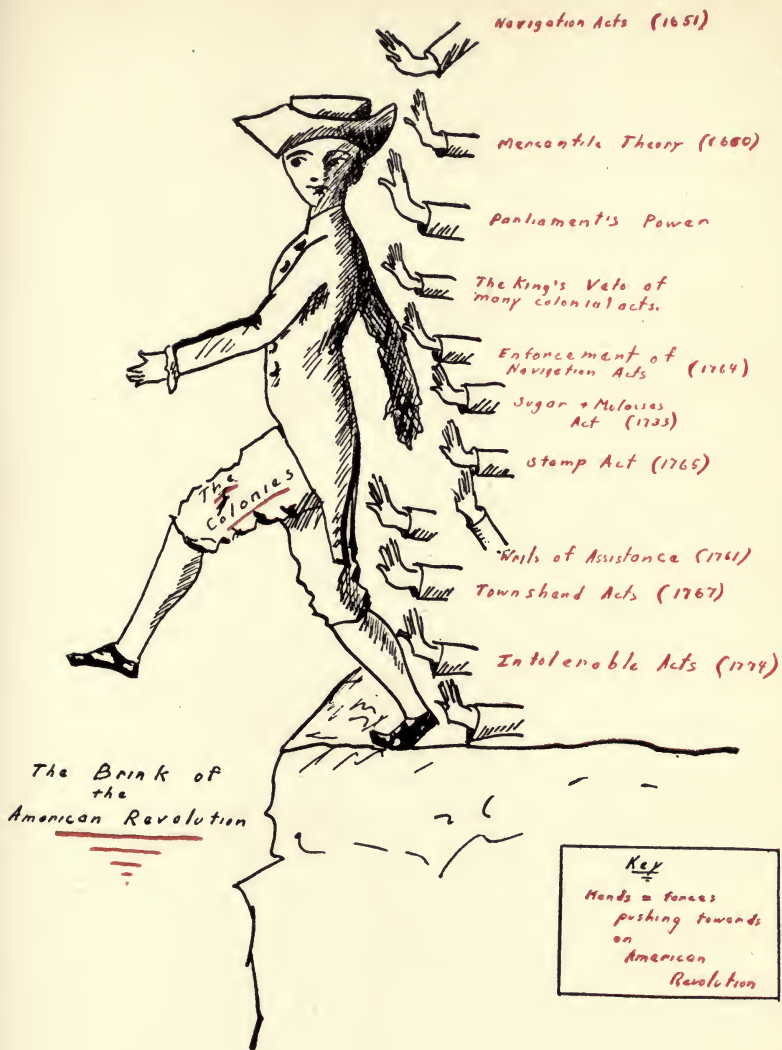 Navigation Acts (1651)
Mercantile Theory (1660)
Parliament's Power
The King's Veto of
many colonial acts.
Enforcement of
Navigation Acts (1764)
Sugar + Molasses
Act (1733)
Stamp Act (1765)
Writs of Assistance (1761)
Townshend Acts (1767)
Intolerable Acts (1774)
The
Colonies
The Brink of
the
American Revolution
Key
Hands = forces
pushing towards
an
American
Revolution